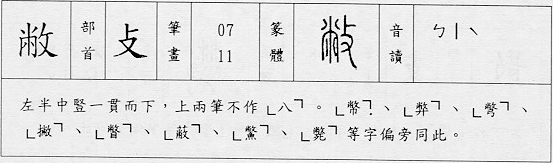 敝 部首 攴 筆畫 07 11 篆體 敝 音讀 ㄅㄧˋ
左半中豎一貫而下，上兩筆不作「八」。「幣」、「弊」、「彆」、
「撇」、「瞥」、「蔽」、「鱉」、「斃」等字偏旁同此。